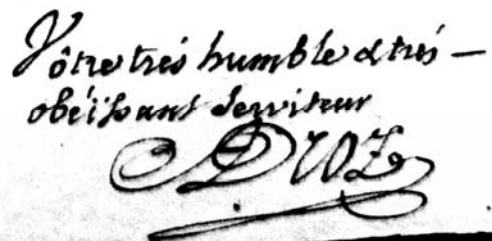 Vôtre trés humble & trés —
obéissant serviteur
Droz